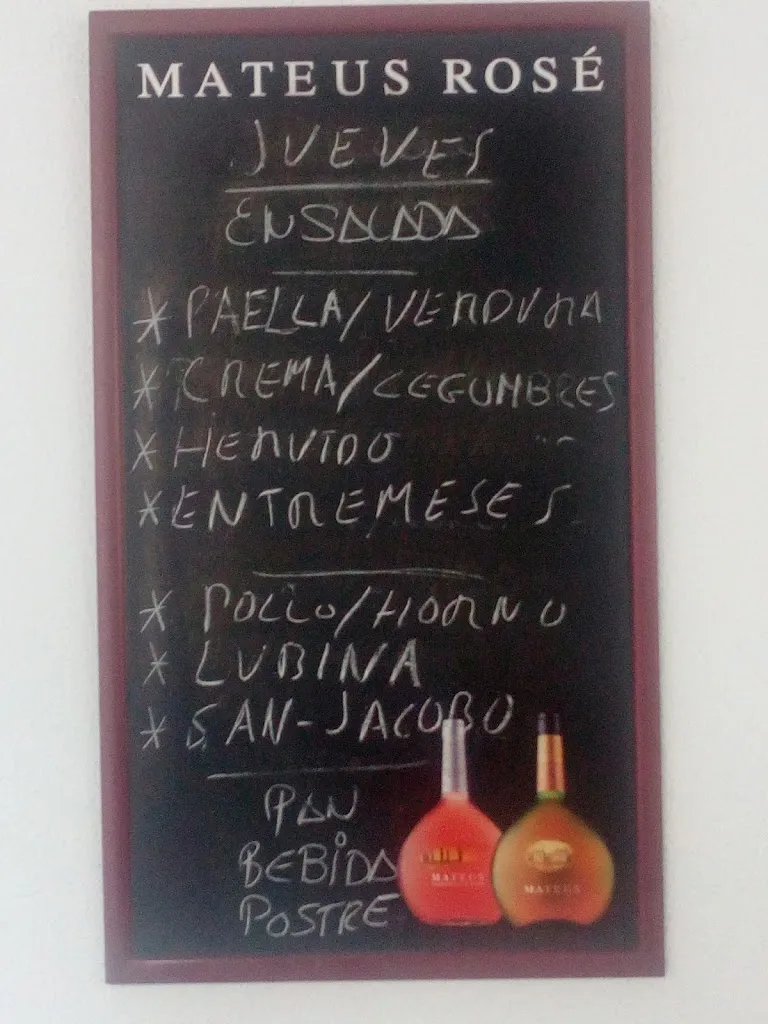 MATEUS ROSÉ
JUEVES
ENSALADA
* PAELLA/VERDURA
* CREMA/LEGUMBRES
* HERVIDO "
* ENTREMESES
* POLLO/HORNO
* LUBINA
* SAN-JACOBO
PAN
BEBIDA
POSTRE
MATEUS MATEUS